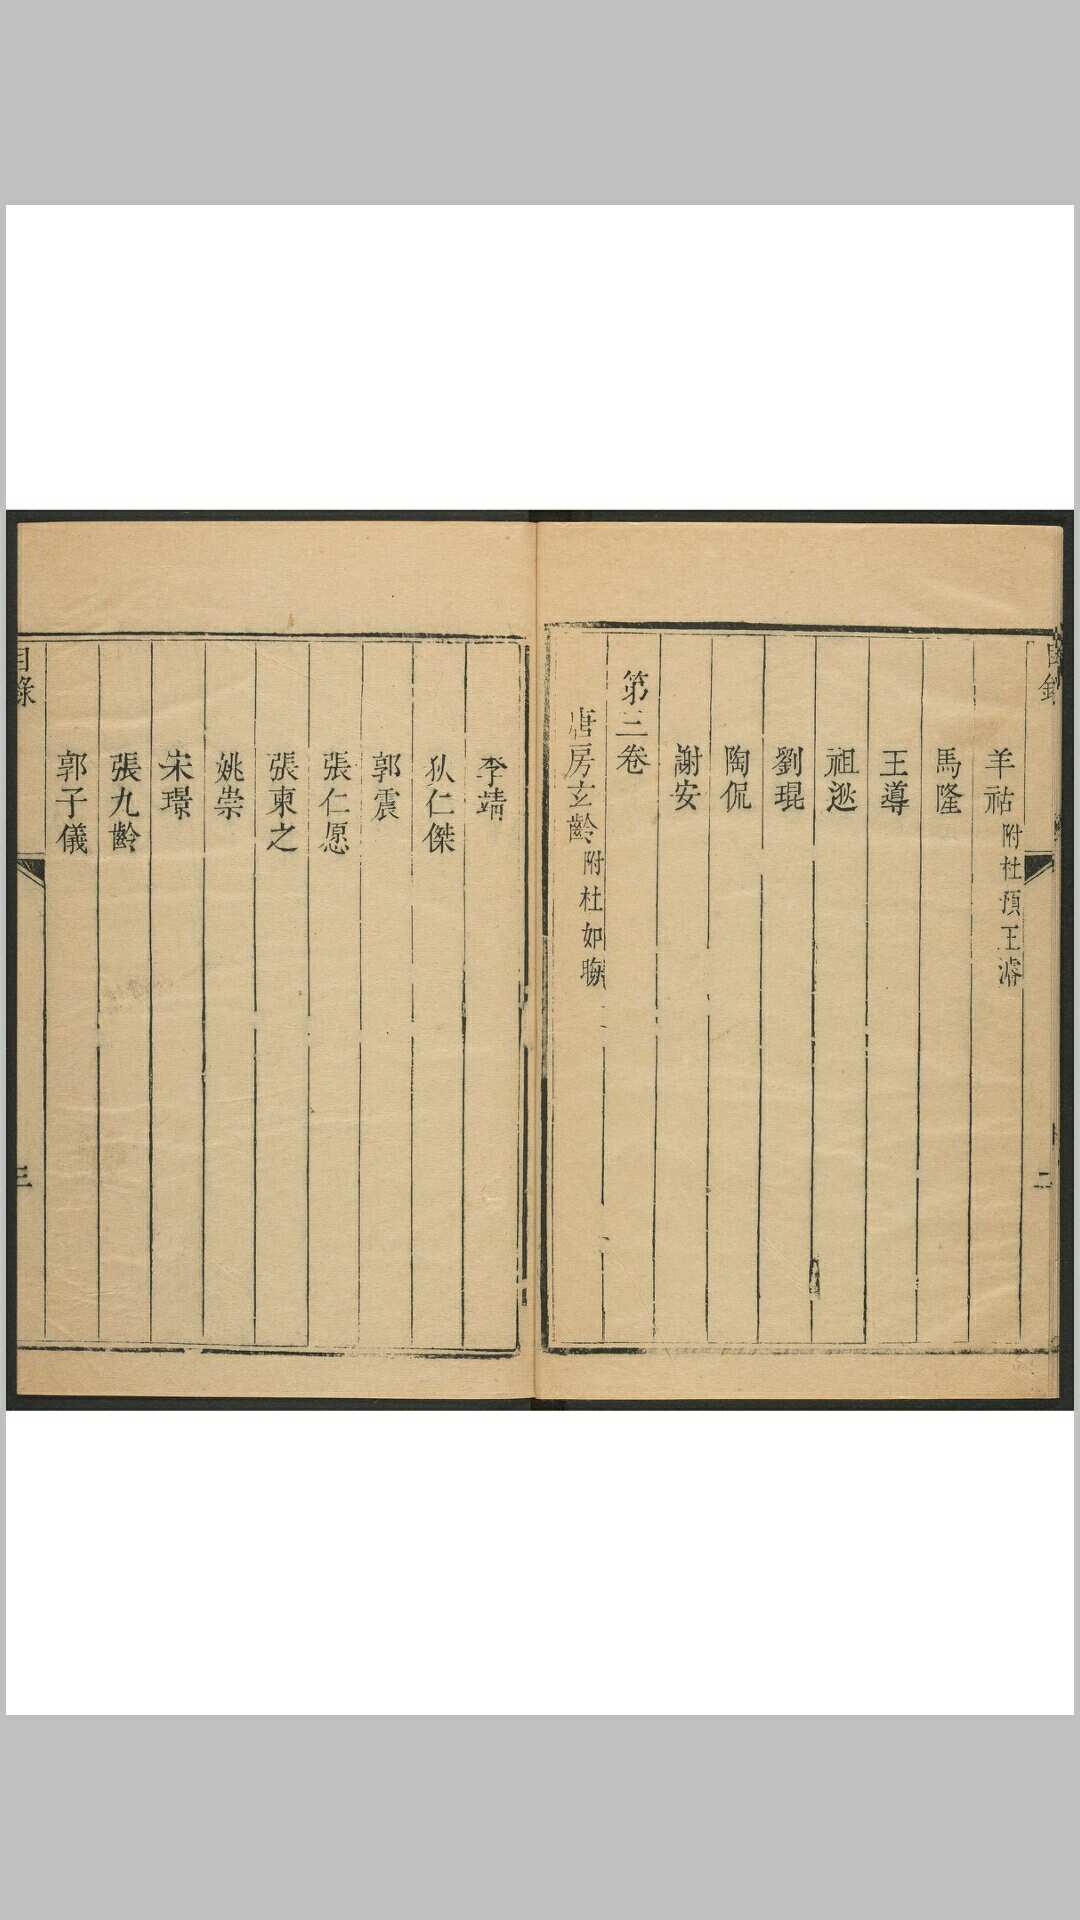 目錄
二
羊祜附杜預王濬
馬隆
王導
祖逖
劉琨
陶侃
謝安
第三卷
唐房玄齡附杜如晦
李靖
狄仁傑
郭震
張仁愿
張柬之
姚崇
宋璟
張九齡
郭子儀
目錄
三